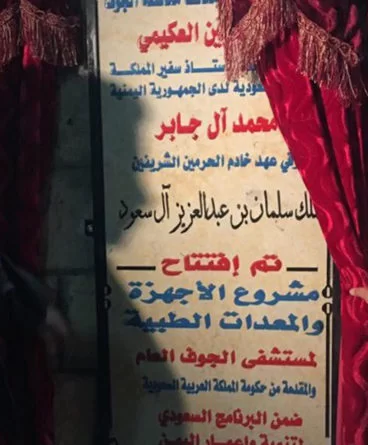 محافظة الجوف
ين العكيمي
ستاذ سفير المملكة
عودية لدى الجمهورية اليمنية
محمد آل جابر
في عهد خادم الحرمين الشريفين
لك سلمان بن عبدالعزيز آل سعود
تم إفتتاح
مشروع الأجهزة
والمعدات الطبية
لمستشفى الجوف العام
والمقدمة من حكومة المملكة العربية السعودية
ضمن البرنامج السعودي
لتنمية وإعمار اليمن